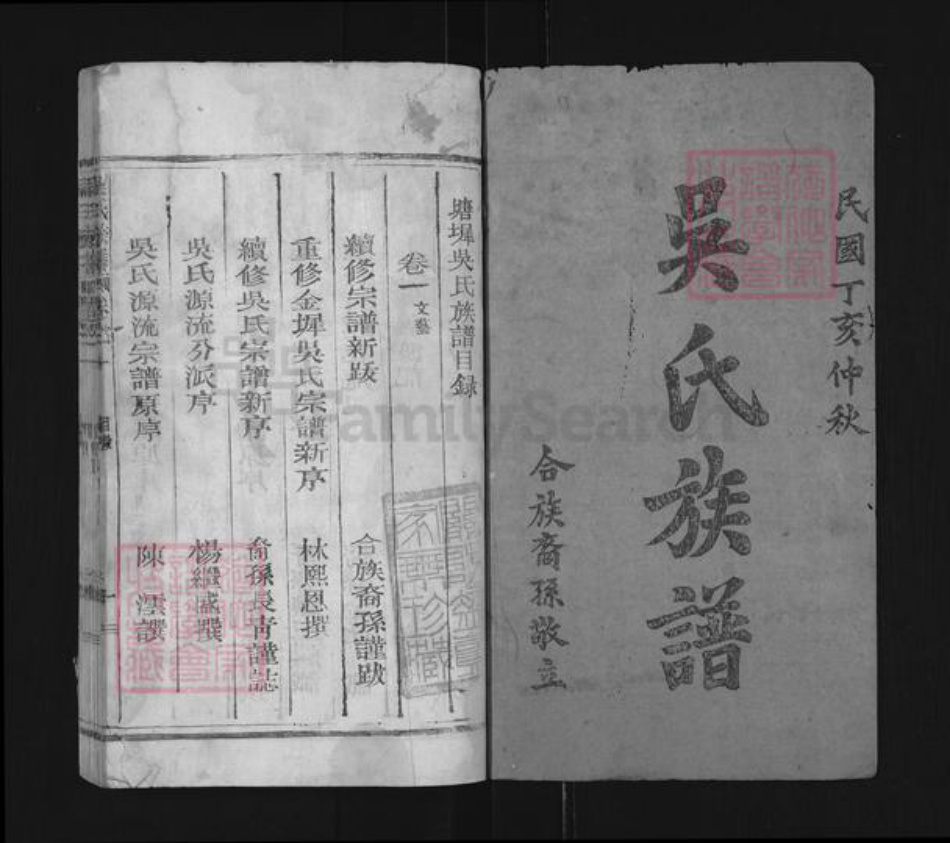 民國丁亥仲秋
吳氏族譜
合族裔孫敬立
塘墀吳氏族譜目録
卷一 文藝
續修宗譜新跋 合族裔孫謹跋
重修金墀吳氏宗譜新序 林熙恩撰
續修吳氏宗譜新序 裔孫長青謹誌
吳氏源流分派序 楊繼盛撰
吳氏源流宗譜原序 陳澐譔
FamilySearch